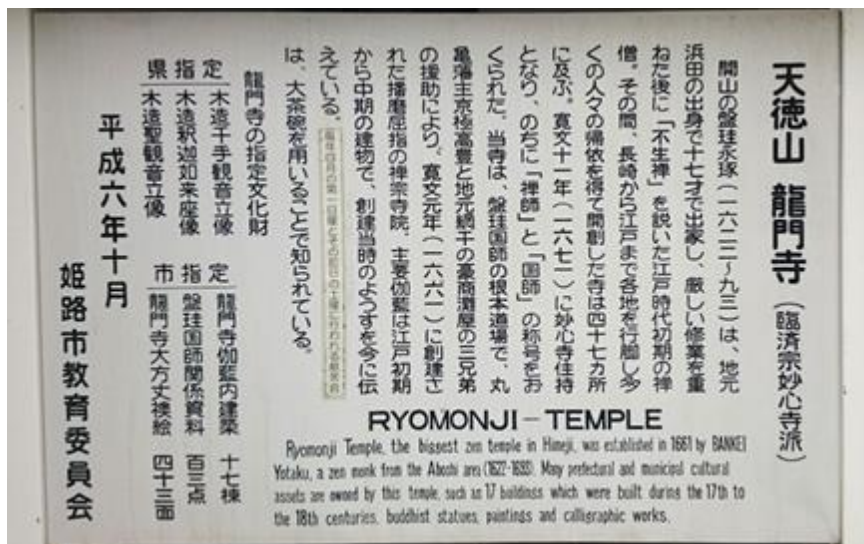 天徳山 龍門寺（臨済宗妙心寺派）
開山の盤珪永琢（一六二二～九三）は、地元
浜田の出身で十七才で出家し、厳しい修業を重
ねた後に「不生禅」を説いた江戸時代初期の禅
僧。その間、長崎から江戸まで各地を行脚し多
くの人々の帰依を得て開創した寺は四十七カ所
に及ぶ。寛文十一年（一六七一）に妙心寺住持
となり、のちに「禅師」と「国師」の称号をお
くられた。当寺は、盤珪国師の根本道場で、丸
亀藩主京極高豊と地元網干の豪商灘屋の三兄弟
の援助により、寛文元年（一六六一）に創建さ
れた播磨屈指の禅宗寺院。主要伽藍は江戸初期
から中期の建物で、創建当時のようすを今に伝
えている。毎年四月の第一日曜とその前日の土曜に行われる
は、大茶碗を用いることで知られている。
龍門寺の指定文化財
県指定
木造千手観音立像
木造釈迦如来座像
木造聖観音立像
市指定
龍門寺伽藍内建築 十七棟
盤珪国師関係資料 百三点
龍門寺大方丈襖絵 四十三面
平成六年十月
姫路市教育委員会
RYOMONJI－TEMPLE
Ryomonji Temple, the biggest zen temple in Himeji, was established in 1661 by BANKEI
Yotaku, a zen monk from the Aboshi area (1622-1693). Many prefectural and municipal cultural
assets are owned by this temple, such as 17 buildings which were built during the 17th to
the 18th centuries, buddhist statues, paintings and calligraphic works.